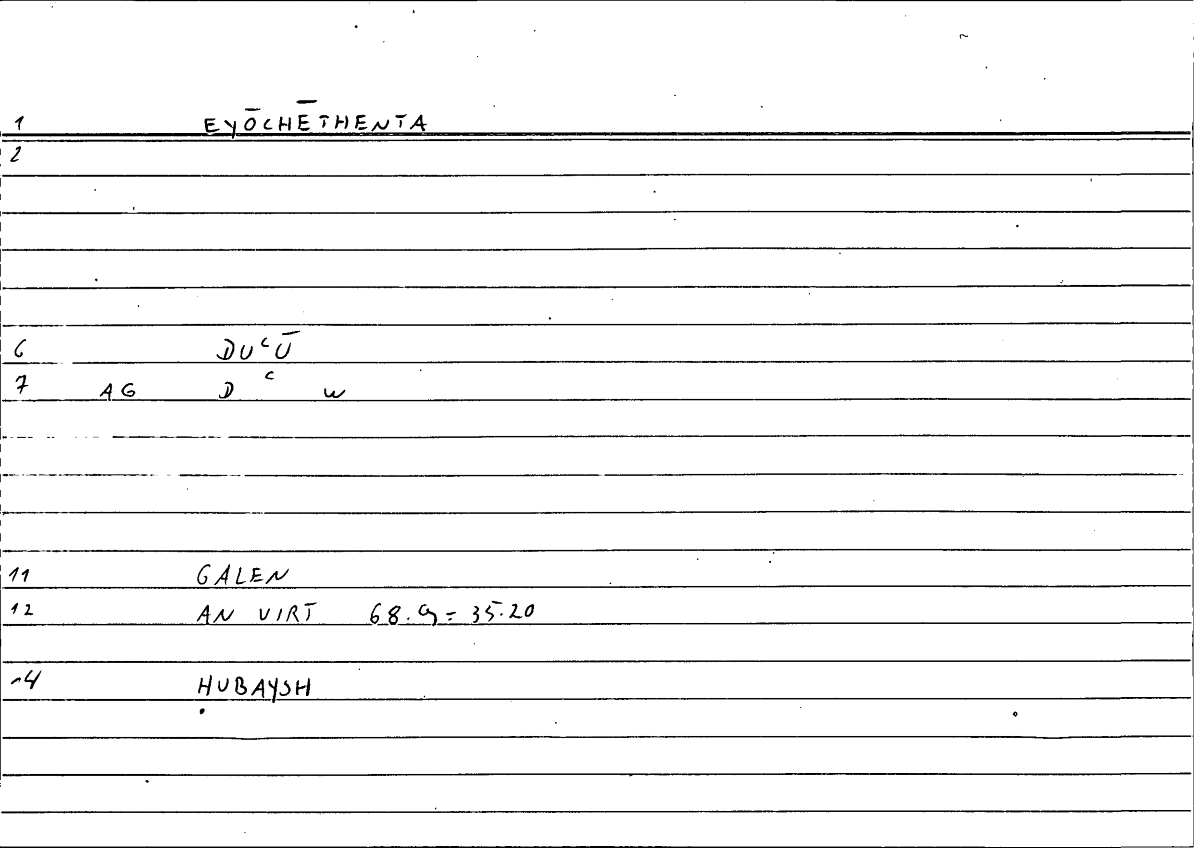 1 EYŌCHĒTHENTA
2
6 DUᶜŪ
7 AG D ᶜ W
11 GALEN
12 AN VIRT 68.9 = 35.20
14 ḤUBAYSH